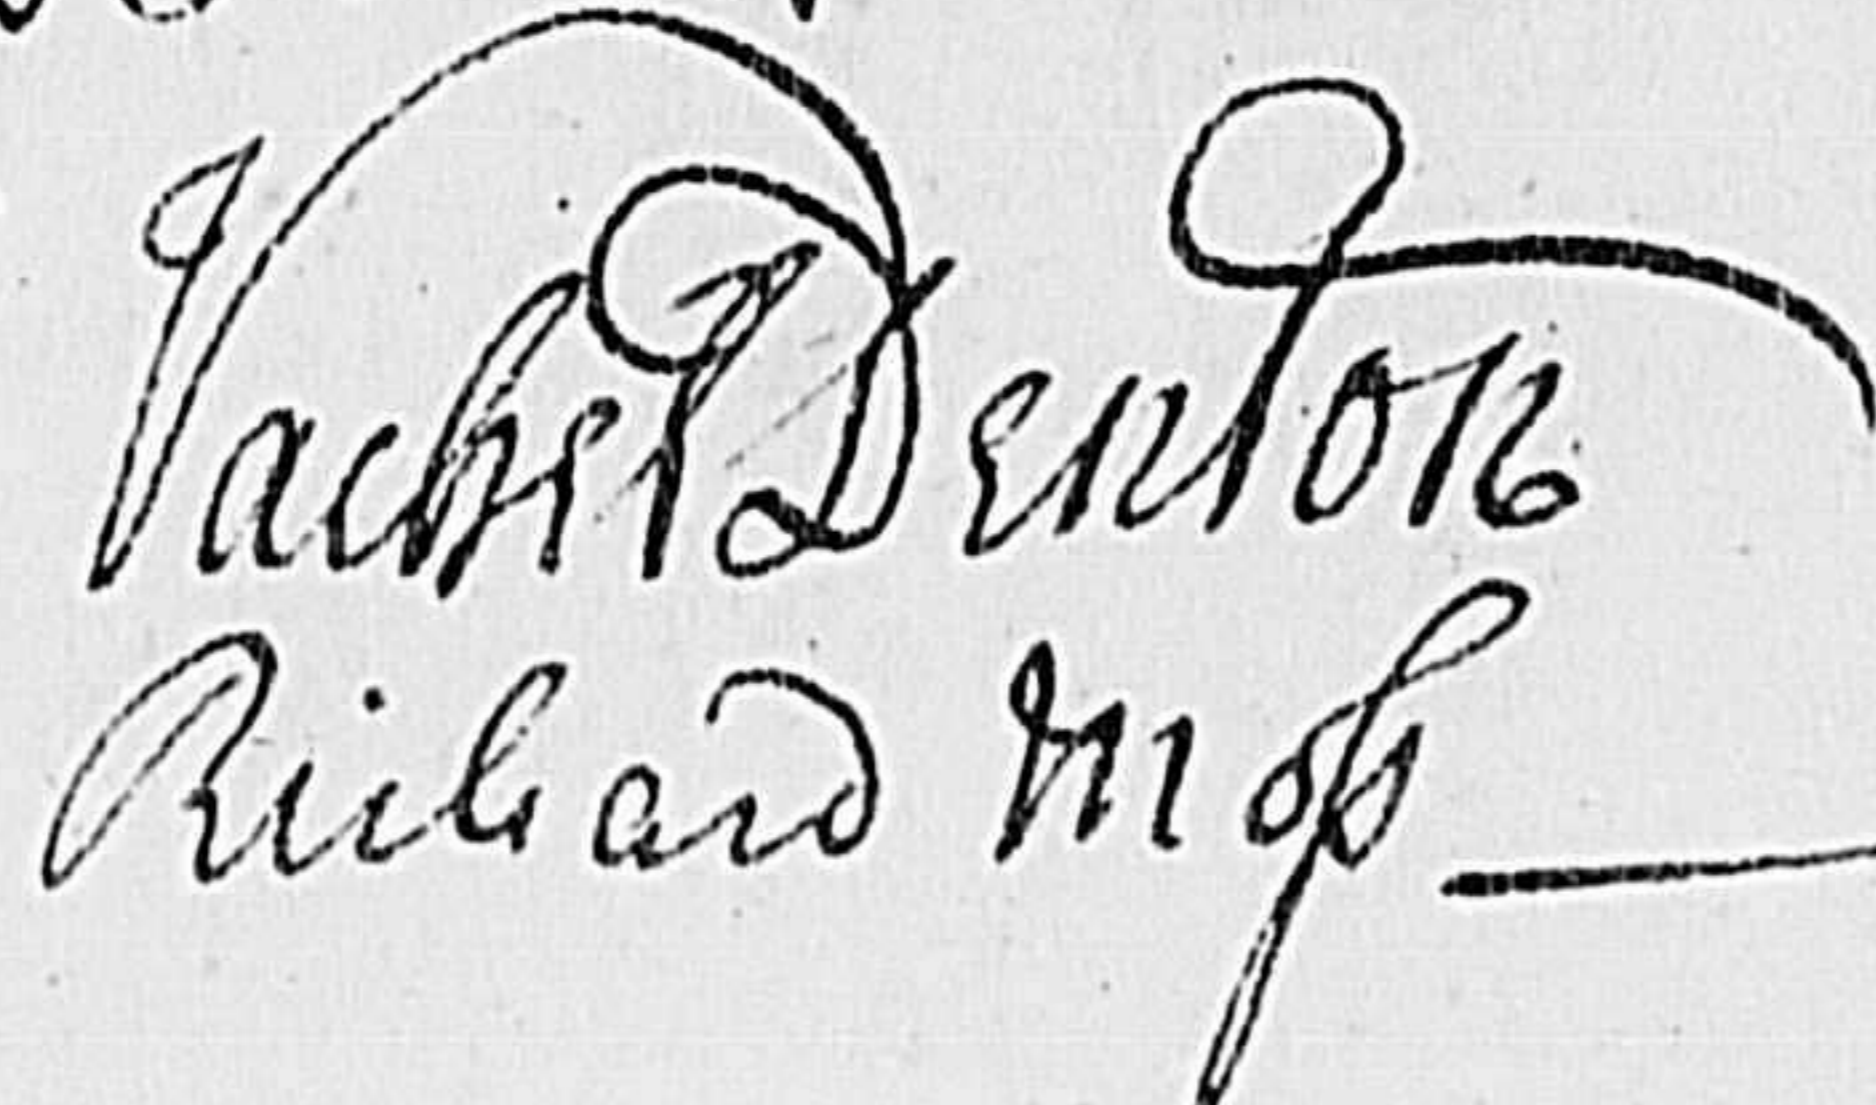 Vachel Denton
Richard Moſs